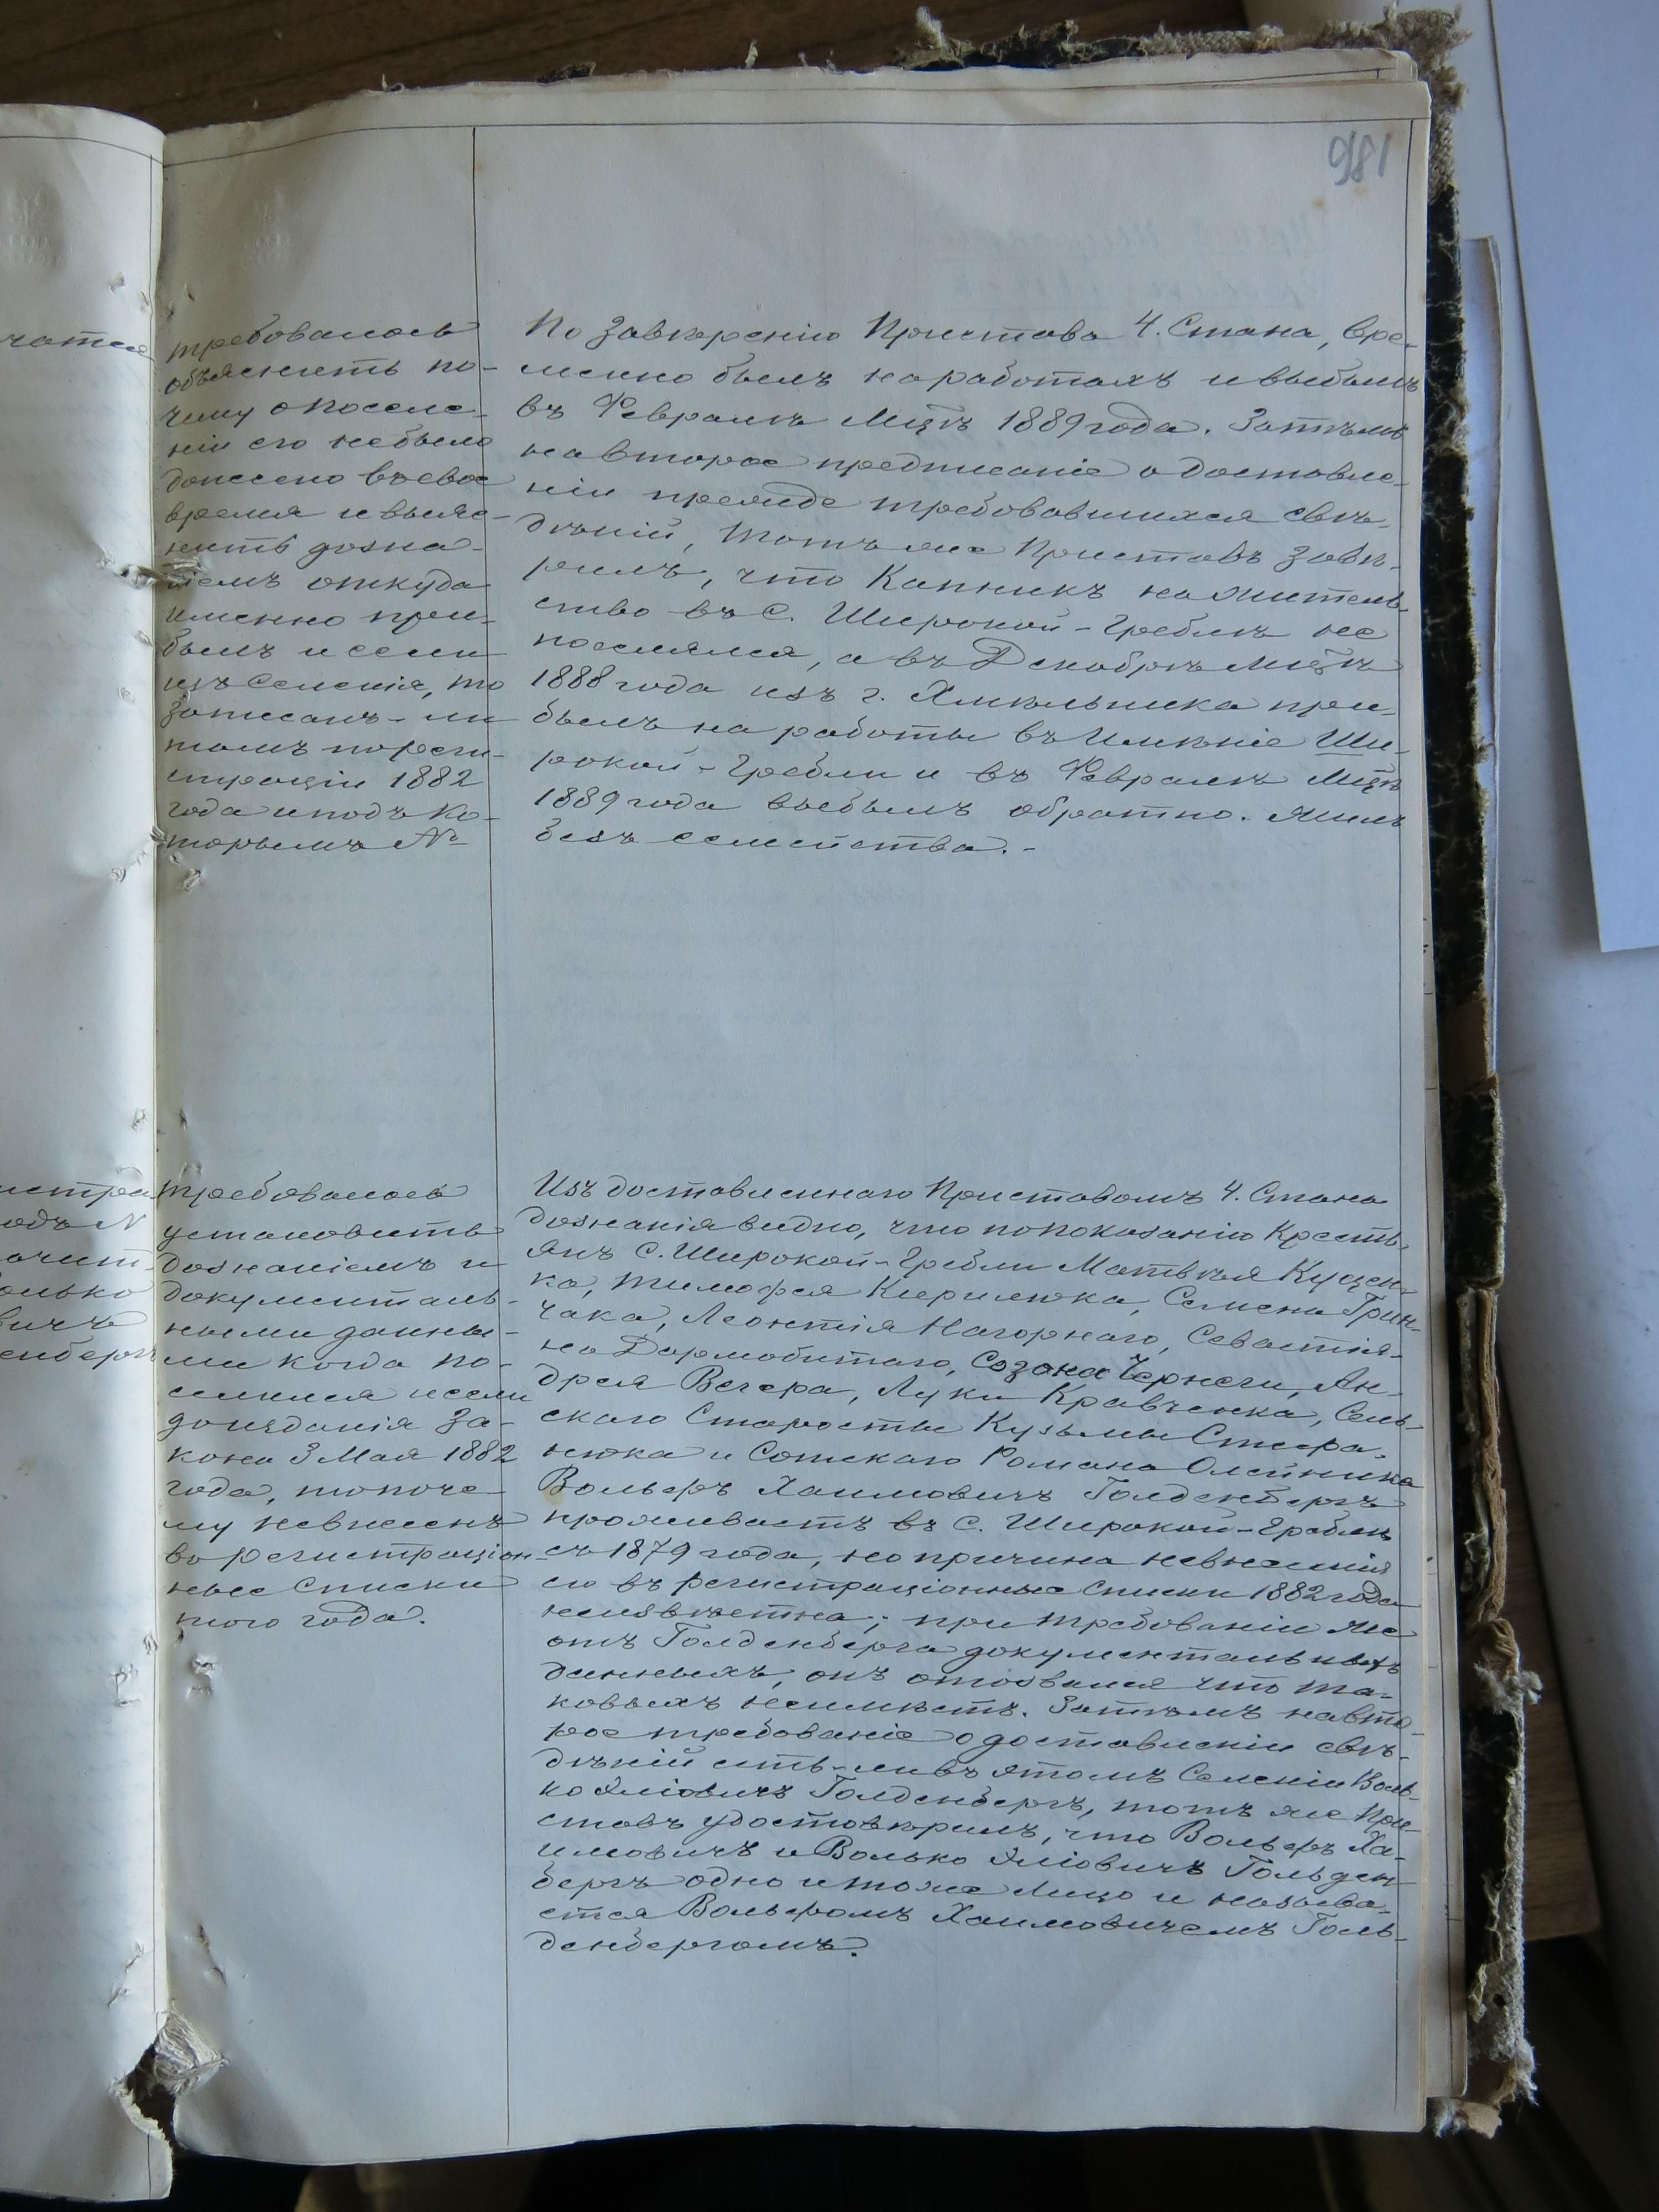 186
чатся
требовалось
объяснить по-
чему о поселе-
ніи его небыло
донесено въсвое
время и выяс-
нить дозна-
ніемъ откуда
именно при-
былъ и если
изъ Селенія, то
записанъ-ли
тамъ порегис-
страціи 1882
года и подъ ко-
торымъ №
По завѣренію Пристава 4. Стана, вре-
менно былъ наработахъ и выбылъ
въ Февралѣ Мцѣ 1889 года. Затѣмъ
на второе предписаніе о доставле-
ніи прежде требовавшихся свѣ-
дѣній, тотъ же Приставъ завѣ-
рилъ, что Капникъ на житель-
ство въ с. Широкой-Греблѣ не
поселялся, а въ Декабрѣ Мцѣ
1888 года изъ г. Хмѣльника при-
былъ на работы въ Имѣніе Ши-
рокой-Гребли и въ Февралѣ Мцѣ
1889 года выбылъ обратно. Жилъ
безъ семейства.-
истра
одъ N
очит-
олько
вичъ
енбергъ
требовалось
установить
дознаніемъ и
документаль-
ными данны-
ми когда по-
селился и если
доизданія За-
кона 3 Мая 1882
года, то поче-
му невнесенъ
во регистраціон-
ные Списки
того года.
Изъ доставленнаго Приставомъ 4. Стана
дознанія видно, что по показанію Кресть-
янъ с. Широкой-Гребли Матвѣя Куцен-
ка, Тимофея Кирилюка, Семена Грин-
чака, Леонтія Нагорнаго, Севастія-
на Дармобитаго, Созона Чернеги, Ан-
дрея Вечера, Луки Кравченка, Сель-
скаго Старосты Кузьмы Стера-
нюка и Сотскаго Романа Олейника
Вольфъ Хаимовичъ Голденбергъ
проживаетъ въ с. Широкой-Греблѣ
съ 1879 года, но причина невнесенія
его въ регистраціонные Списки 1882 года
неизвѣстна; при требованіи же
отъ Голденберга документальныхъ
данныхъ, онъ отозвался что та-
ковыхъ неимѣетъ. Затѣмъ на вто-
рое требованіе о доставленіи свѣ-
дѣній есть-ли въ этомъ Селеніи Воль-
ко Эліовичъ Голденбергъ, тотъ же При-
ставъ удостовѣрилъ, что Вольфъ Ха-
имовичъ и Волько Эліовичъ Гольден-
бергъ одно и тоже Лицо и называ-
ется Вольфомъ Хаимовичемъ Голь-
денбергомъ.